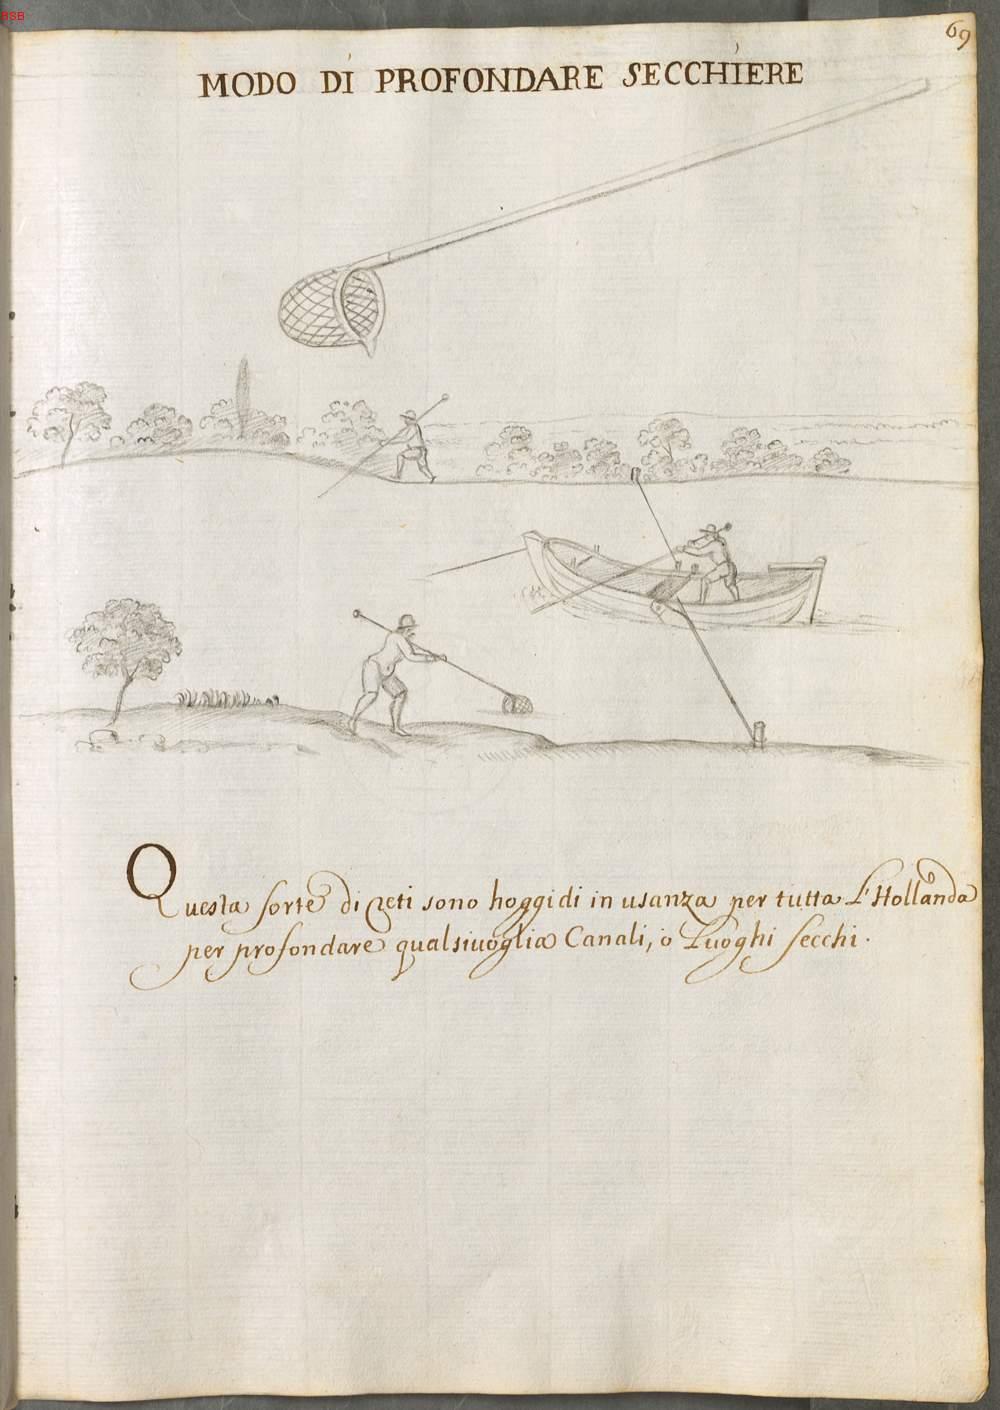 BSB
69
MODO DI PROFONDARE SECCHIERE
Questa sorte di reti sono hoggidi in usanza per tutta L'Hollanda
per profondare qualsiuoglia Canali, ò Luoghi secchi.